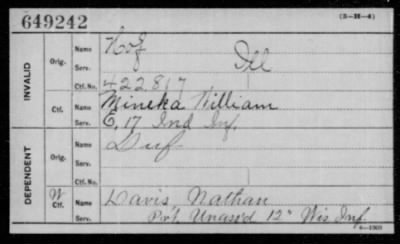 649242 (3-M-4)
INVALID Orig. Name Hof Ill
Serv.
Ctf. No. 422817
Ctf. Name Mineka William
Serv. E, 17 Ind Inf.
DEPENDENT Orig. Name Duf
Serv.
Ctf. No.
W Ctf. Name Davis, Nathan
Serv. Pvt. Unassd 12" Wis Inf.